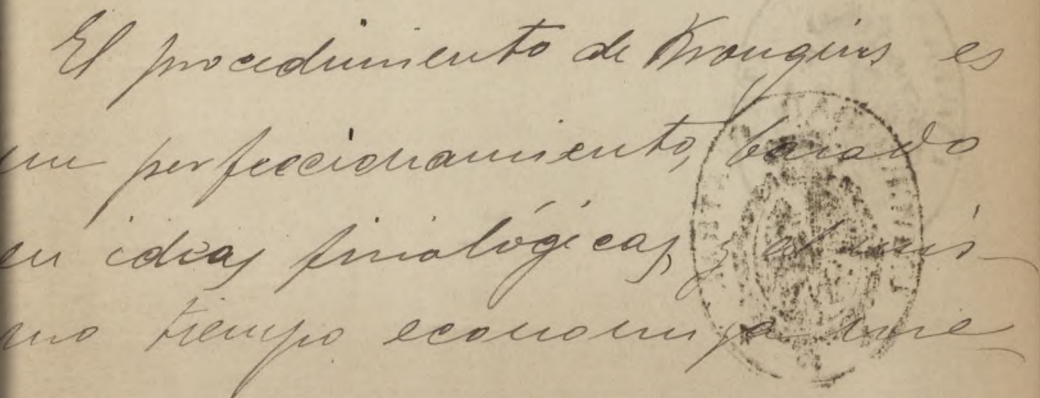 El procedimiento de Mougins es
un perfeccionamiento, basado
en ideas fisiológicas, y al mis-
mo tiempo economiza